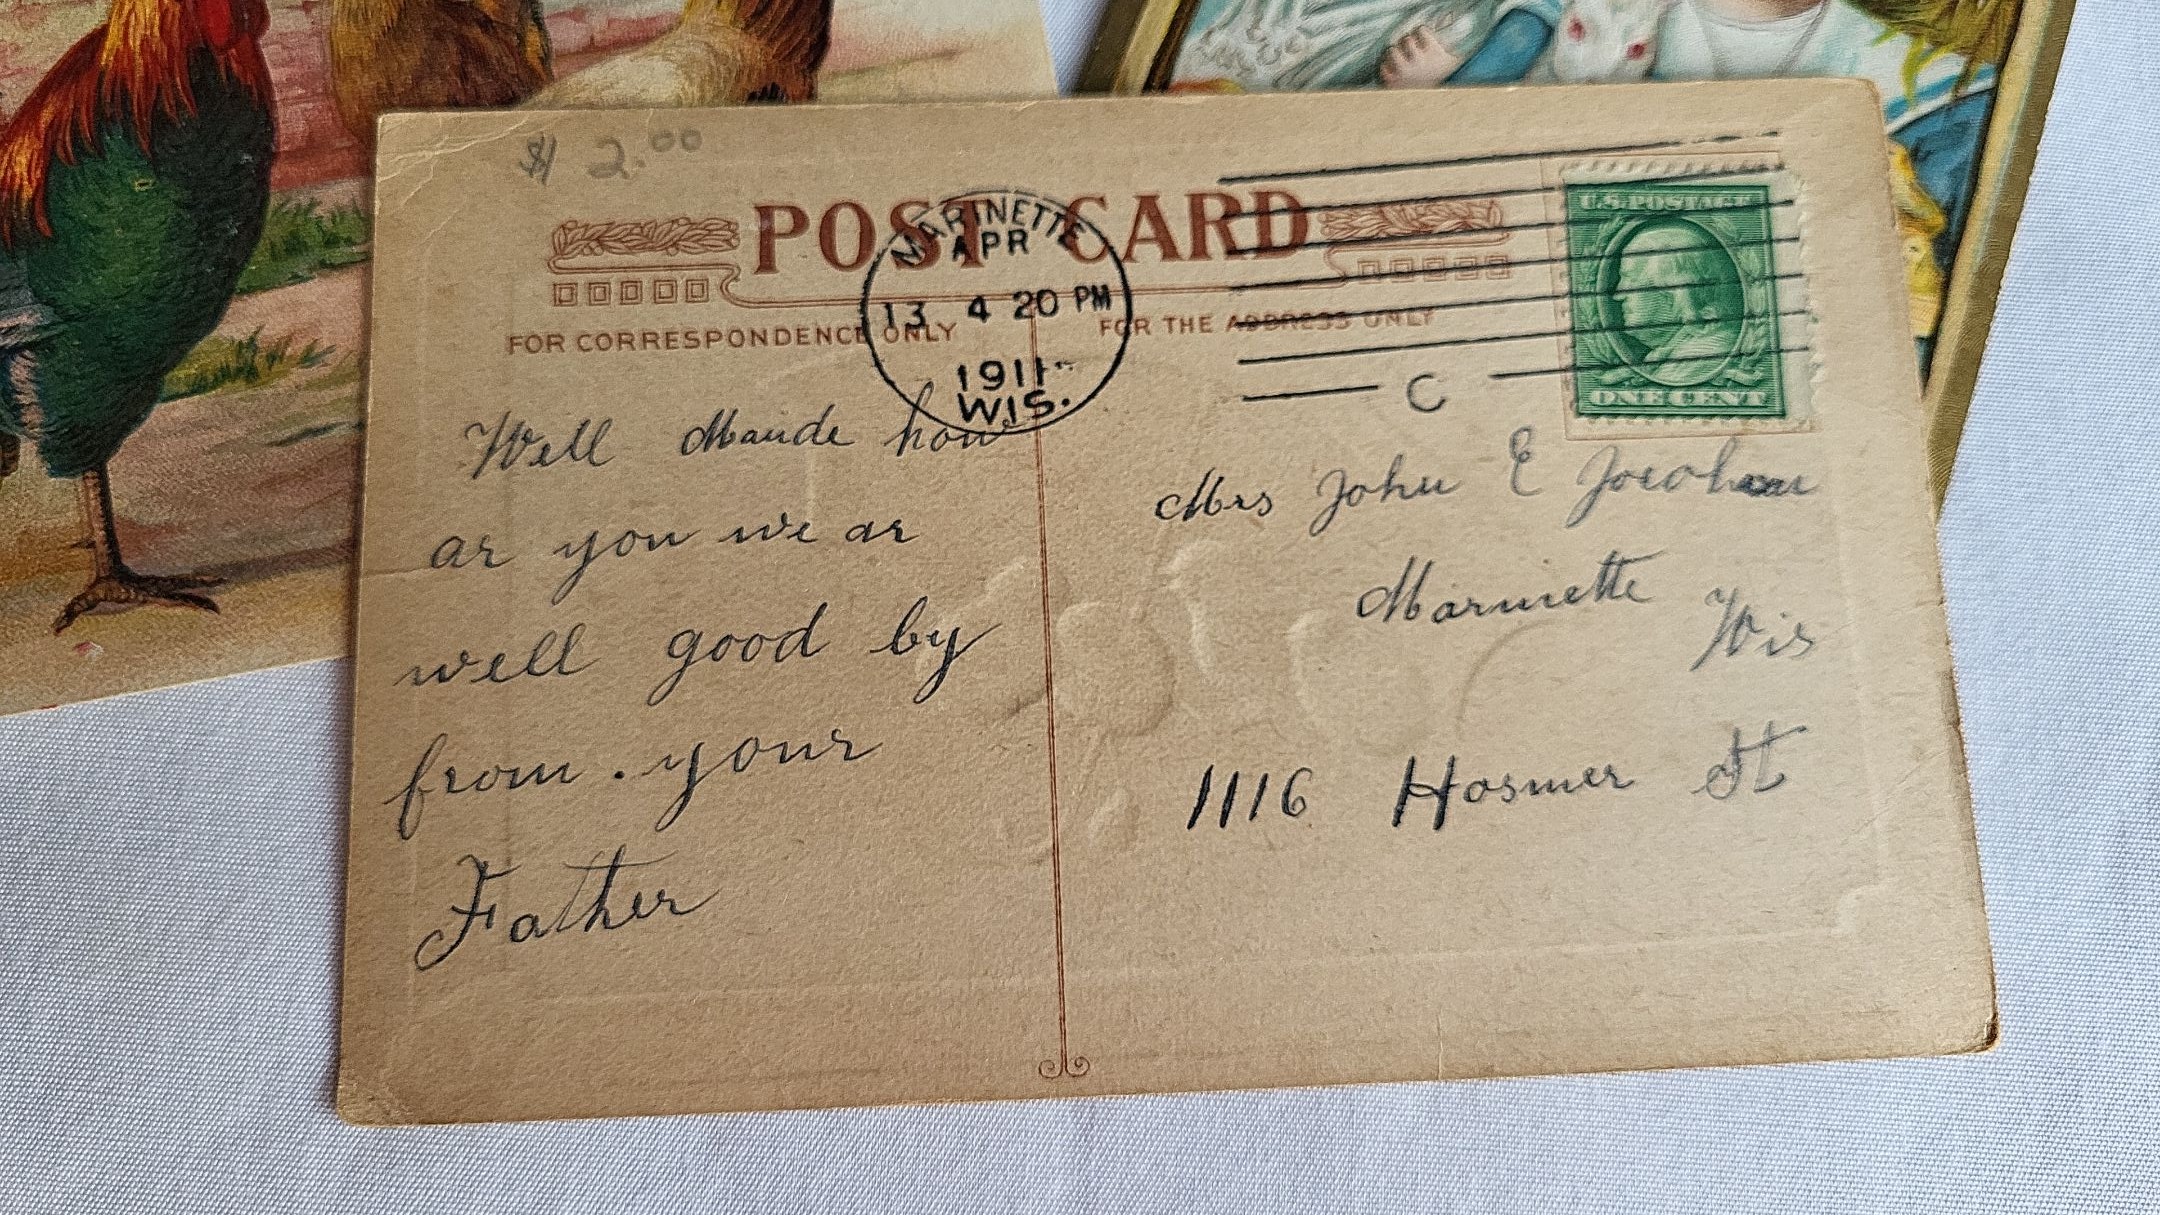 $ 2.00
POST CARD
MARINETTE
APR
13 4 20 PM
1911
WIS.
C
U.S. POSTAGE
ONE CENT
FOR CORRESPONDENCE ONLY
FOR THE ADDRESS ONLY
Well Maude how
ar you we ar
well good by
from . your
Father
Mrs John E
Marinette
Wis
1116 Hosmer St